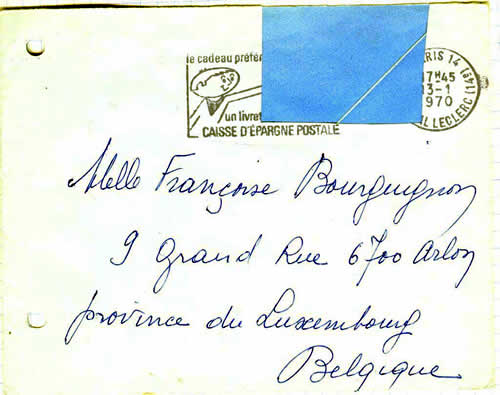 le cadeau préfér
un livret
CAISSE D'ÉPARGNE POSTALE
RIS 14 (14e)
17H45
13-1
1970
L LECLERC
Melle Françoise Bourguignon
9 Grand Rue 6700 Arlon
province du Luxembourg
Belgique